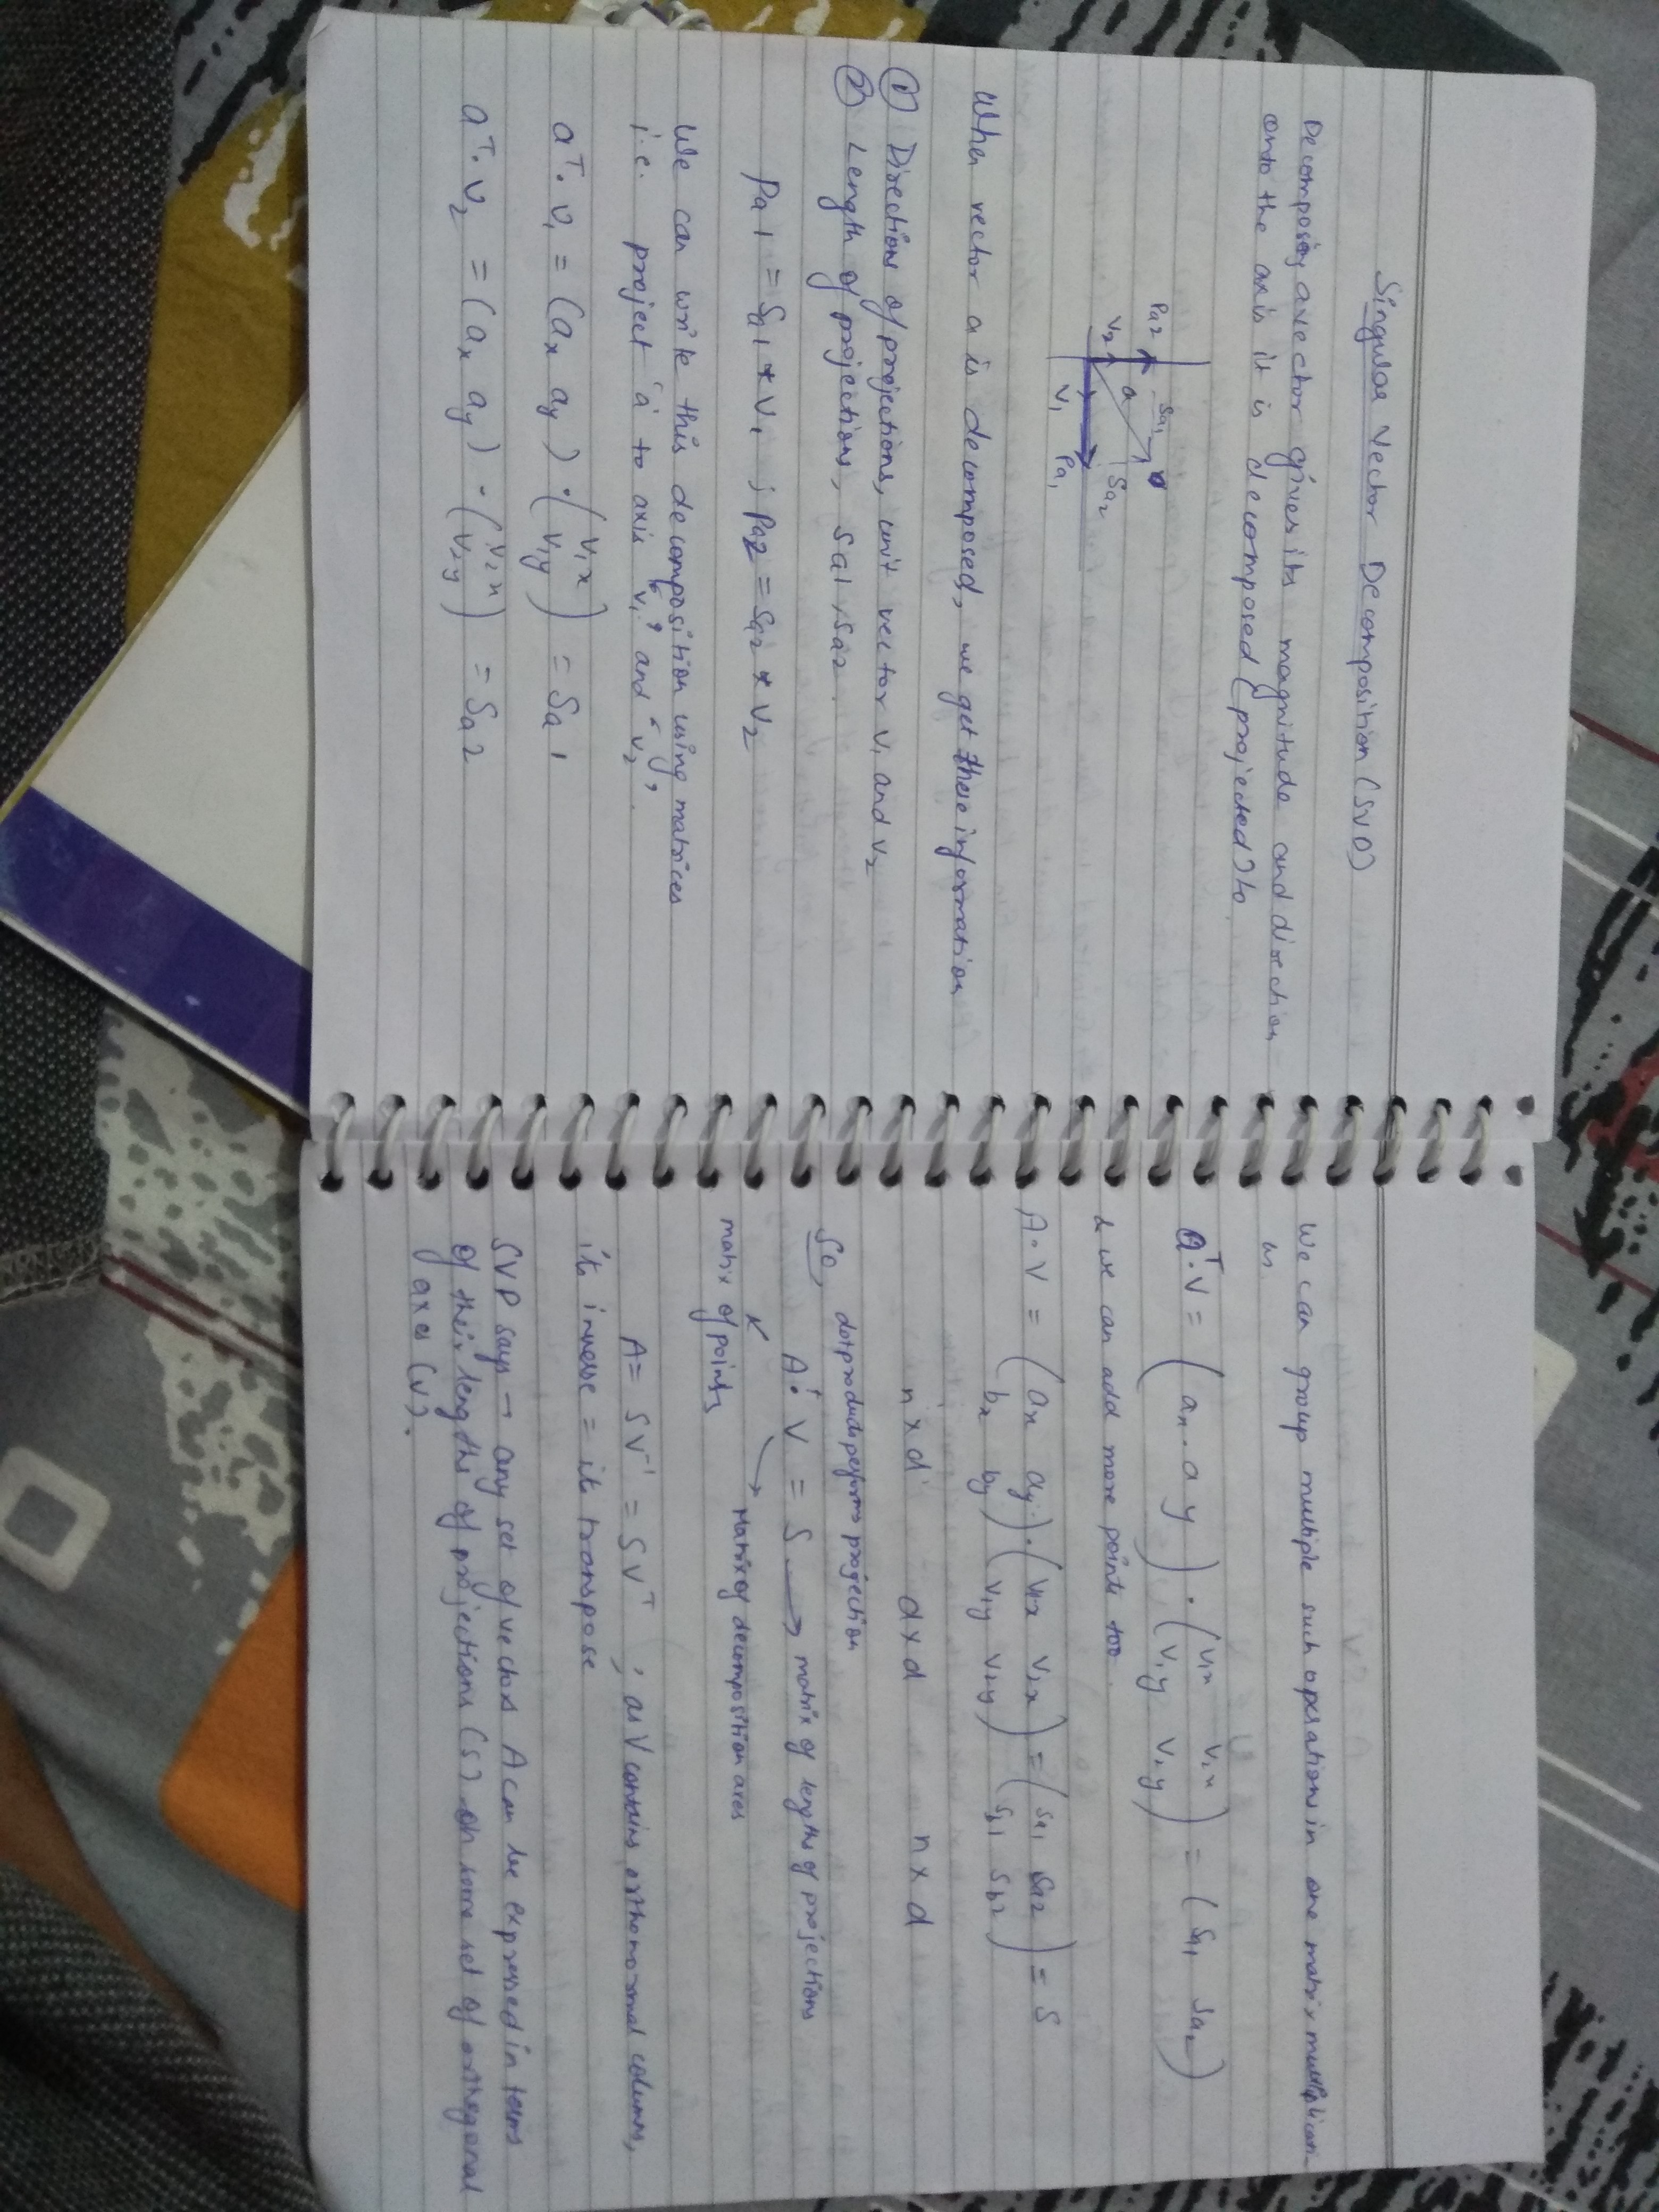 Singular Vector Decomposition (SVD)
Decomposing a vector gives its magnitude and direction
onto the axis it is decomposed (projected) to
Pa2
Sa1
a
Sa2
V2
V1
Pa1
When vector a is decomposed, we get these information
① Directions of projections, unit vector V1 and V2
② Length of projections, Sa1, Sa2.
Pa1 = Sa1 * V1 ; Pa2 = Sa2 * V2
We can write this decomposition using matrices
i.e. project 'a' to axis 'V1' and 'V2'.
aᵀ. V1 = (ax ay) . (V1x V1y) = Sa1
aᵀ. V2 = (ax ay) . (V2x V2y) = Sa2
We can group multiple such operations in one matrix
aᵀ.V = (ax . ay) . (V1x V2x
V1y V2y) = (Sa1 Sa2)
& we can add more points too.
A.V = (ax ay) . (V1x V2x) = (Sa1 Sa2) = S
bx by V1y V2y Sb1 Sb2
n x d d x d n x d
So, dot product performs projection
A . V = S → matrix of lengths of projections
matrix of points Matrix of decomposition axes
A = SV⁻¹ = SVᵀ ; as V contains orthonormal columns,
its inverse = its transpose
SVD says → any set of vectors A can be expressed in terms
of their lengths of projections (S) on some set of orthogonal
axes (V).